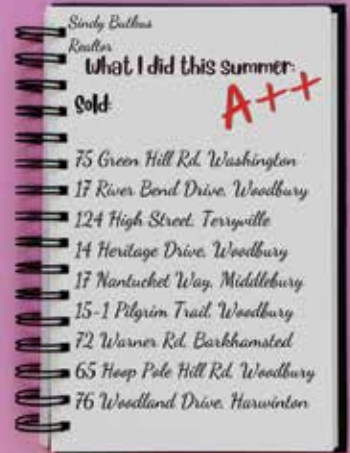 Sindy Butkus
Realtor
What I did this summer:
Sold:
A++
75 Green Hill Rd, Washington
17 River Bend Drive, Woodbury
124 High Street, Terryville
14 Heritage Drive, Woodbury
17 Nantucket Way, Middlebury
15-1 Pilgrim Trail, Woodbury
72 Warner Rd, Barkhamsted
65 Hoop Pole Hill Rd, Woodbury
76 Woodland Drive, Harwinton